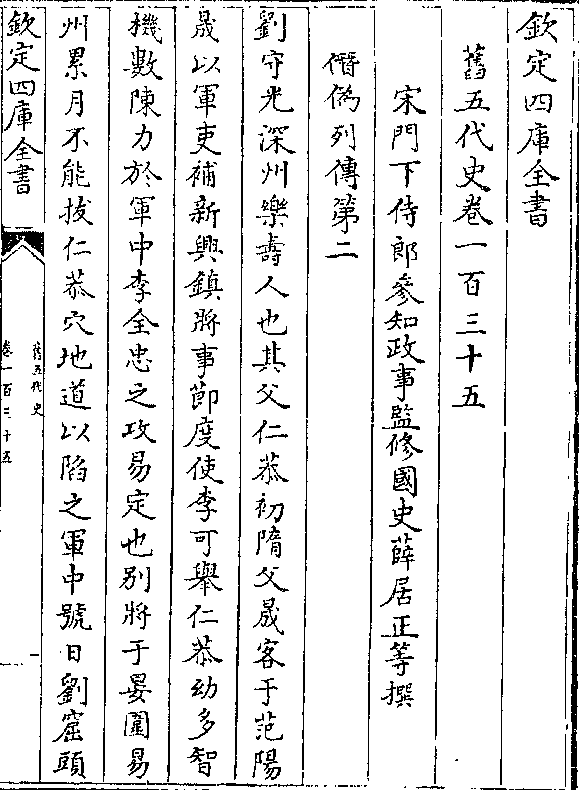 欽定四庫全書
舊五代史卷一百三十五
宋門下侍郎參知政事監修國史薛居正等撰
僭偽列傳第二
劉守光深州樂壽人也其父仁恭初隋父晟客于范陽
晟以軍吏補新興鎮將事節度使李可舉仁恭幼多智
機數陳力於軍中李全忠之攻易定也别將于晏圍易
州累月不能拔仁恭穴地道以陷之軍中號曰劉窟頭
欽定四庫全書
舊五代史
卷一百三十五
一